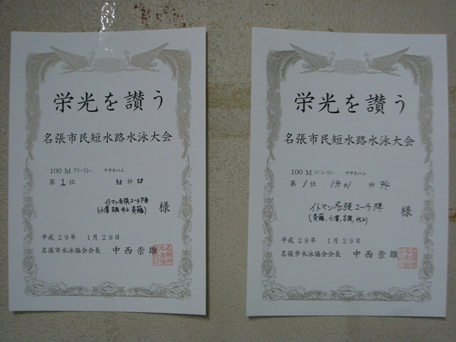 栄光を讃う
名張市民短水路水泳大会
100M フリーリレー
第 1 位
イトマン名張コーチ陣
様
平成29年 1月29日
名張市水泳協会会長 中西崇雄
栄光を讃う
名張市民短水路水泳大会
100M
第 1 位 1分
イトマン名張コーチ陣
様
平成29年 1月29日
名張市水泳協会会長 中西崇雄